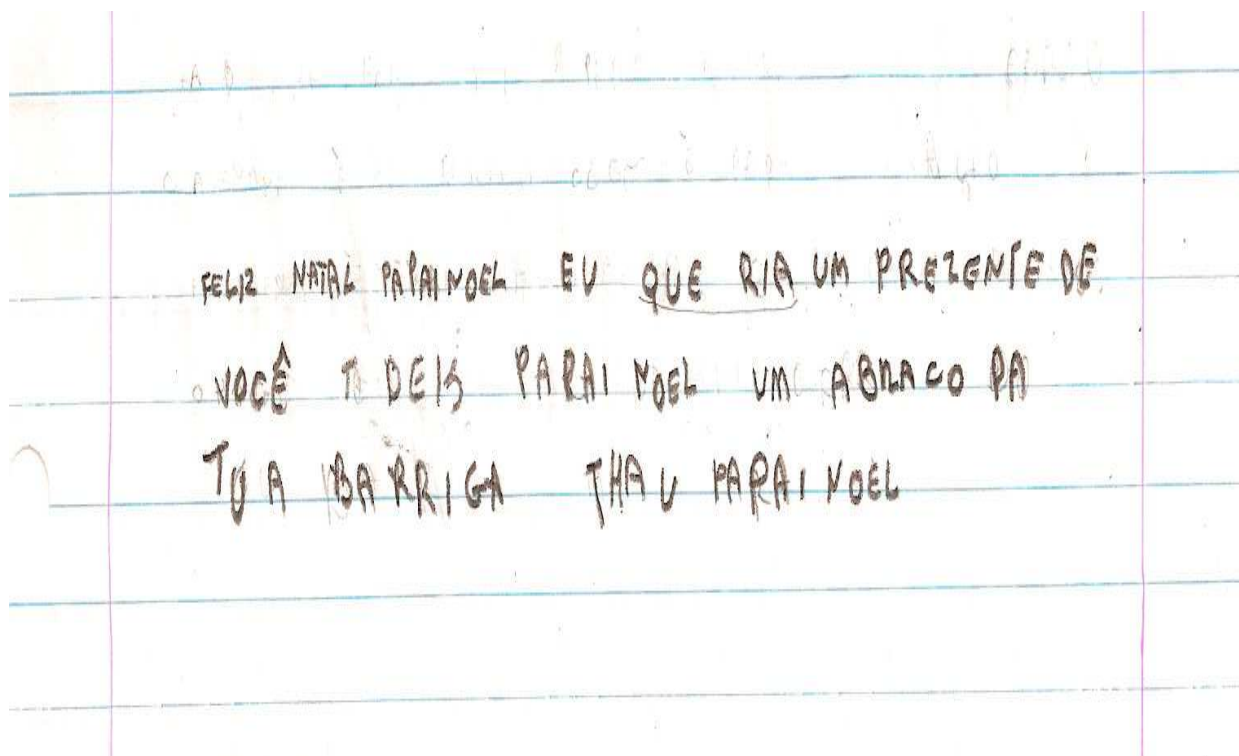 FELIZ NATAL PAPAI NOEL EU QUE RIA UM PREZENTE DE
VOCÊ DEIS PAPAI NOEL UM ABRACO PA
TUA BARRIGA THAU PAPAI NOEL